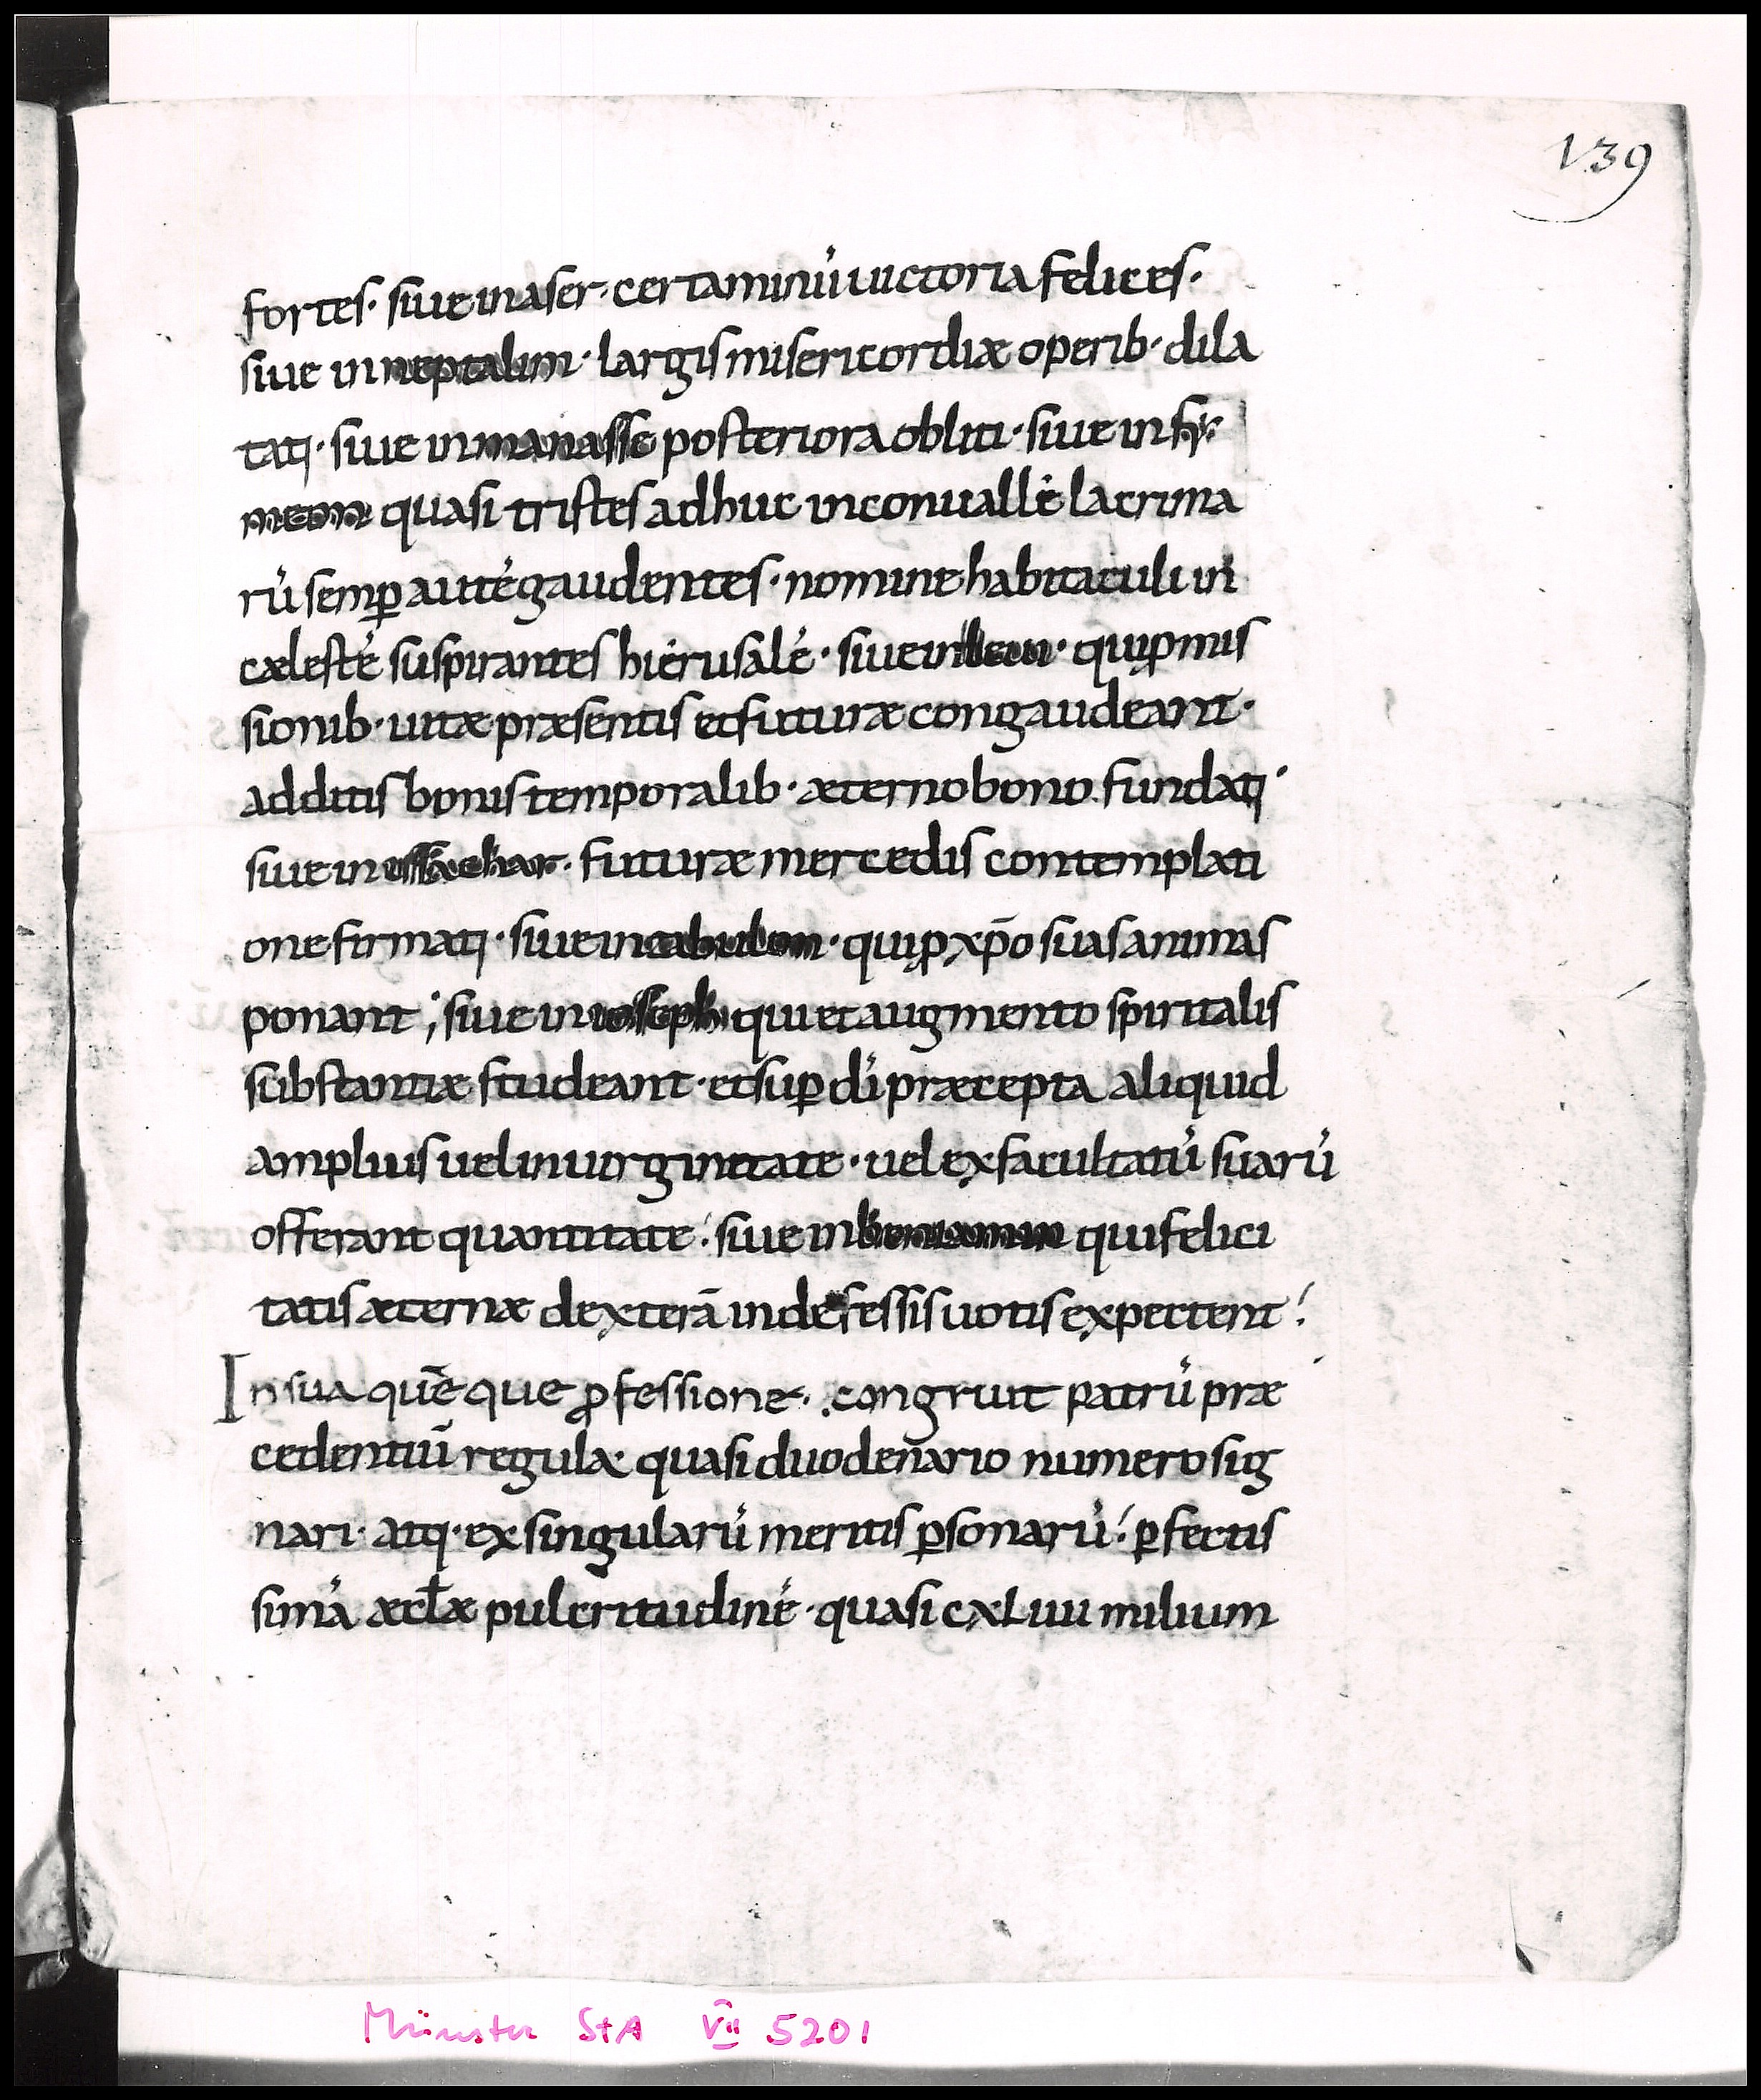 139
fortes· siue in aser· certaminū uictoria felices·
siue in neptalim· largis misericordiæ operib· dila
tati· siue in manasse posteriora obliti· siue in sy
meon quasi tristes adhuc in conuallē lacrima
rū semꝑ autē gaudentes· nomine habitaculi in
cælestē suspirantes hierusalē· siue in leui· qui ꝓmis
sionib· uitæ præsentis et futuræ congaudeant·
additis bonis temporalib· æterno bono fundati·
siue in issachar· futuræ mercedis contemplati
one firmati· siue in zabulon· qui ꝓ xp̄o suas animas
ponant; siue in ioseph qui et augmento spiritalis
substantiæ studeant· et suꝑ dī præcepta aliquid
amplius uel in uirginetate· uel ex facultatū suarū
offerant quantitate: siue in beniamin qui felici
tatis æternæ dexterā indefessis uotis expectent:
In sua quēque ꝓfessione· congruit patrū præ
cedentiū regula quasi duodenario numero sig
nari· atq· ex singularū meritis ꝑsonarū: ꝑfectis
simā æclæ pulcritudinē· quasi cxLiiii milium
Münster StA VII 5201